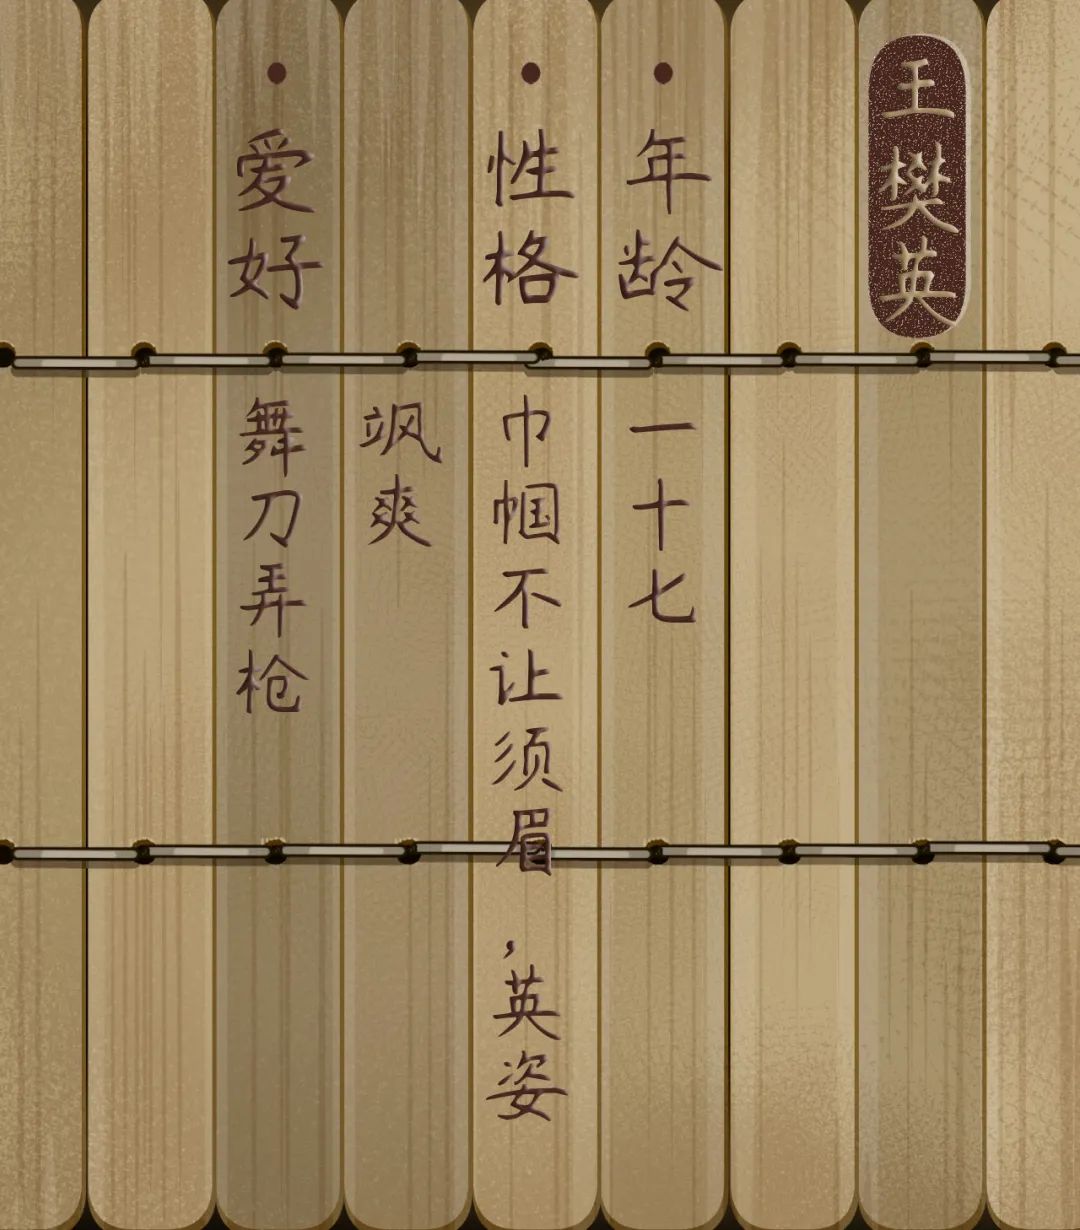 王樊英
•年龄 一十七
•性格 巾帼不让须眉,英姿
飒爽
•爱好 舞刀弄枪